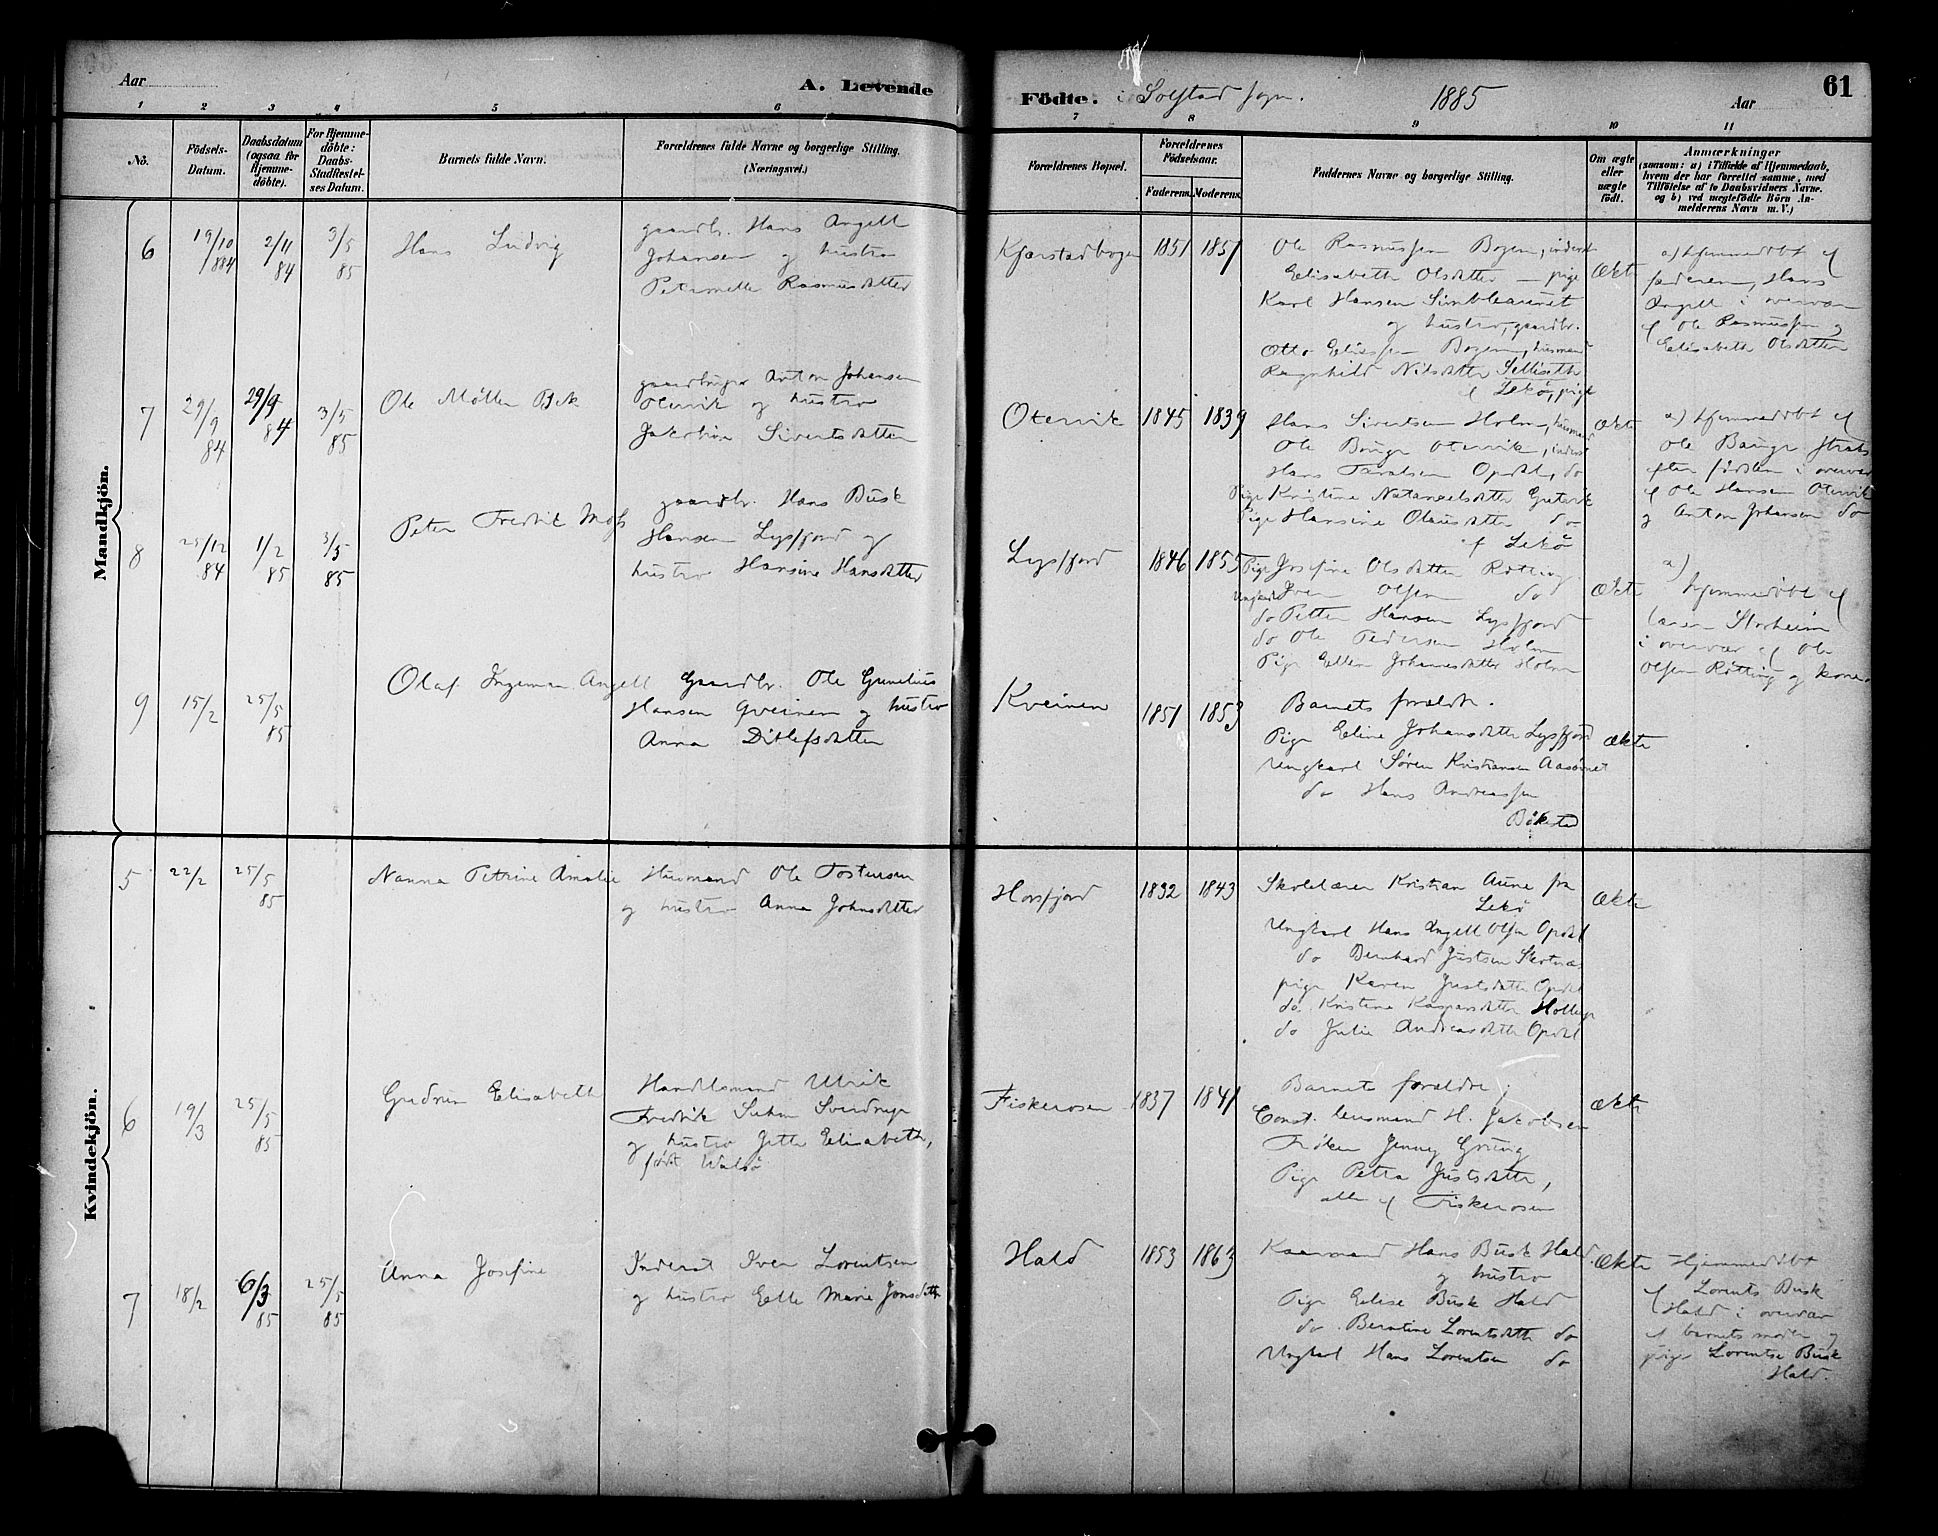 Aar
A. Levende
Födte. i Solstad sogn. 1885 Aar 61
1 2 3 4 5 6 7 8 9 10 11
No.
Födsels-
Datum.
Daabsdatum
(ogsaa for
Hjemme-
döbte).
For Hjemme-
döbte:
Daabs-
Stadfæstel-
ses Datum.
Barnets fulde Navn.
Forældrenes fulde Navne og borgerlige Stilling.
(Næringsvei.)
Forældrenes Bopæl.
Forældrenes
Födselsaar.
Faderens. Moderens.
Faddernes Navne og borgerlige Stilling.
Om ægte
eller
uægte
født.
Anmærkninger
(saasom: a) i Tilfælde af Hjemmedaab,
hvem der har forrettet samme, med
Tilföielse af to Daabsvidners Navne.
og b) ved uægtefödte Börn An-
melderens Navn m. V.)
Mandkjön.
6 19/10 884 2/11 84 3/5 85
Hans Ludvig
gaardbr. Hans Angell
Johansen og hustro
Peternelle Rasmusdatter
Kjærstadbogen 1851 1851
Ole Rasmussen Bogen, inderst
Elisabeth Olsdatter — pige
Karl Hansen Simbleauret
og hustro, gaardbr.
Otto Eliassen Bogen, husmand
Ragnhild Nilsdatter Sellseth
f Lekø, pige
Ækte
a) hjemmedøbt af
faderen, Hans
Angell i overvær
f Ole Rasmussen og
Elisabeth Olsdatter
7 29/9 84 29/9 84 3/5 85
Ole Møller Bek
gaardbruger Anton Johansen
Otervik og hustro
Jakobine Sivertsdatter
Otervik 1845 1839
Hans Sivertsen Holm, husmand
Ole Bauge Otervik, inderst
Hans Taralsen Opdal, do
Pige Kristine Natanaelsdatter Gutvik
Pige Hansine Olausdatter do
f Lekø
Ækte
a) hjemmedøbt af
Ole Bauge straks
efter fødslen i overvær
f Ole Hansen Otervik
og Anton Johansen do
8 25/12 84 1/2 85 3/5 85
Peter Fredrik Moss
gaardbr. Hans Busk
Hansen Lysfjord og
hustro Hansine Hansdatter
Lysfjord 1846 1855
Pige Josefine Olsdatter Røtting
Ungkarl Iver Olsen do
do Petter Hansen Lysfjord
do Ole Pedersen Holm
Pige Ellen Johannesdatter Holm
Ækte
a)
hjemmedøbt af
lærer Storheim
i overvær af Ole
Olsen Røtting og kone
9 15/2 25/5 85
Olaf Ingeman Angell
Gaardbr. Ole Gunelius
Hansen Qveinen og hustro
Anna Ditlefsdatter
Kveinen 1851 1853
Barnets forældr.
Pige Eline Johansdatter Lysfjord
Ungkarl Søren Kristiansen Aasørnet
do Hans Andreassen
Bøkestad
Ækte
Kvindekjön.
5 22/2 25/5 85
Nanna Petrine Amalie
Husmand Ole Tostensen
og hustro Anna Johnsdatter
Horsfjord 1832 1843
Skolelærer Kristian Aune fra
Lekø
Ungkarl Hans Angell Olsen Opdal
do Bernhard Justsen Skotnæs
pige Karen Justsdatter Opdal
do. Kristine Kaspersdatter Holleye
do Julie Andreasdatter Opdal
Ækte
6 19/3 25/5 85
Gudrun Elisabeth
Handelsmand Ulrik
Fredrik Suhm Sverdrup
og hustro Jette Elisabeth,
født Walsø
Fiskerosen 1837 1841
Barnets forældre,
Const. lensmand H. Jakobsen
Frøken Jenny Grüng
Pige Petra Justsdatter,
alle af Fiskerosen
Ækte
7 18/2 6/3 85 25/5 85
Anna Josefine
Inderst Iver Lorentsen
og hustro Elle Marie Jonsdatter
Hald 1853 1863
Kaarmand Hans Busk Hald
og hustro
Pige Elise Busk Hald
do. Berntine Lorentsdatter do
Ungkarl Hans Lorentsen do
Ækte
Hjemmedøbt
af Lorents Busk
Hald i overvær
af barnets moder og
pige Lorentse Busk
Hald.